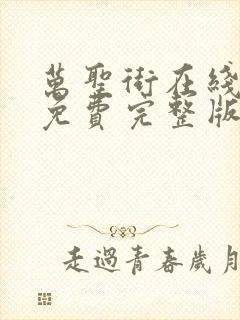 萬聖街在綫
免費完整版
走過青春歲月